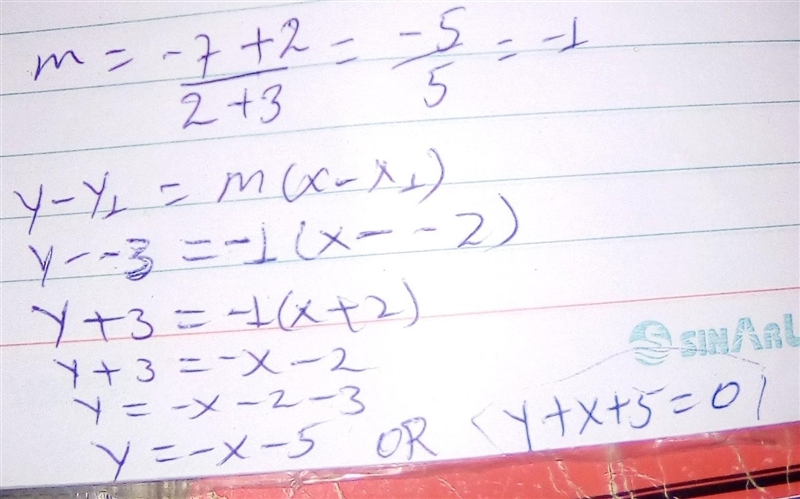 m = -7 + 2 / 2 + 3 = -5 / 5 = -1
y - y₁ = m(x - x₁)
y - -3 = -1(x - - 2)
y + 3 = -1(x + 2)
SINARL
y + 3 = -x - 2
y = -x - 2 - 3
y = -x - 5 OR (y + x + 5 = 0)